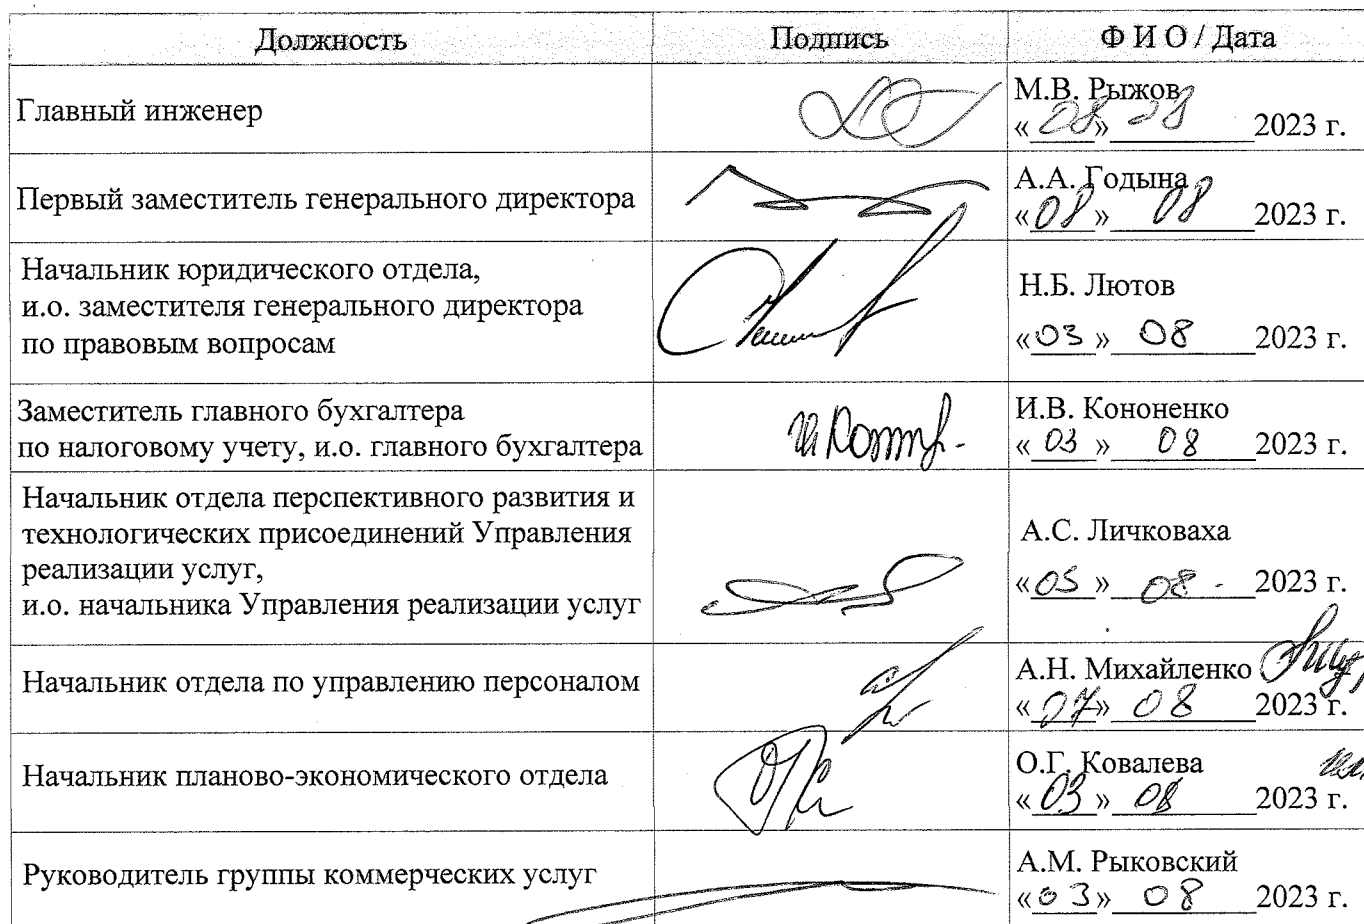 Должность Подпись Ф И О / Дата
Главный инженер
М.В. Рыжов
«08» 08 2023 г.
Первый заместитель генерального директора
А.А. Годына
«08» 08 2023 г.
Начальник юридического отдела,
и.о. заместителя генерального директора
по правовым вопросам
Н.Б. Лютов
«03» 08 2023 г.
Заместитель главного бухгалтера
по налоговому учету, и.о. главного бухгалтера
И.В. Кононенко
«03» 08 2023 г.
Начальник отдела перспективного развития и
технологических присоединений Управления
реализации услуг,
и.о. начальника Управления реализации услуг
А.С. Личковаха
« » 08 2023 г.
Начальник отдела по управлению персоналом
А.Н. Михайленко
«07» 08 2023 г.
Начальник планово-экономического отдела
О.Г. Ковалева
«03» 08 2023 г.
Руководитель группы коммерческих услуг
А.М. Рыковский
«03» 08 2023 г.